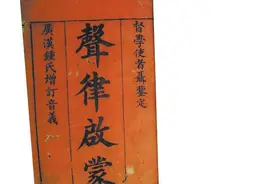 督學使者聶鑒定
聲律啟蒙
廣漢鍾氏增訂音義